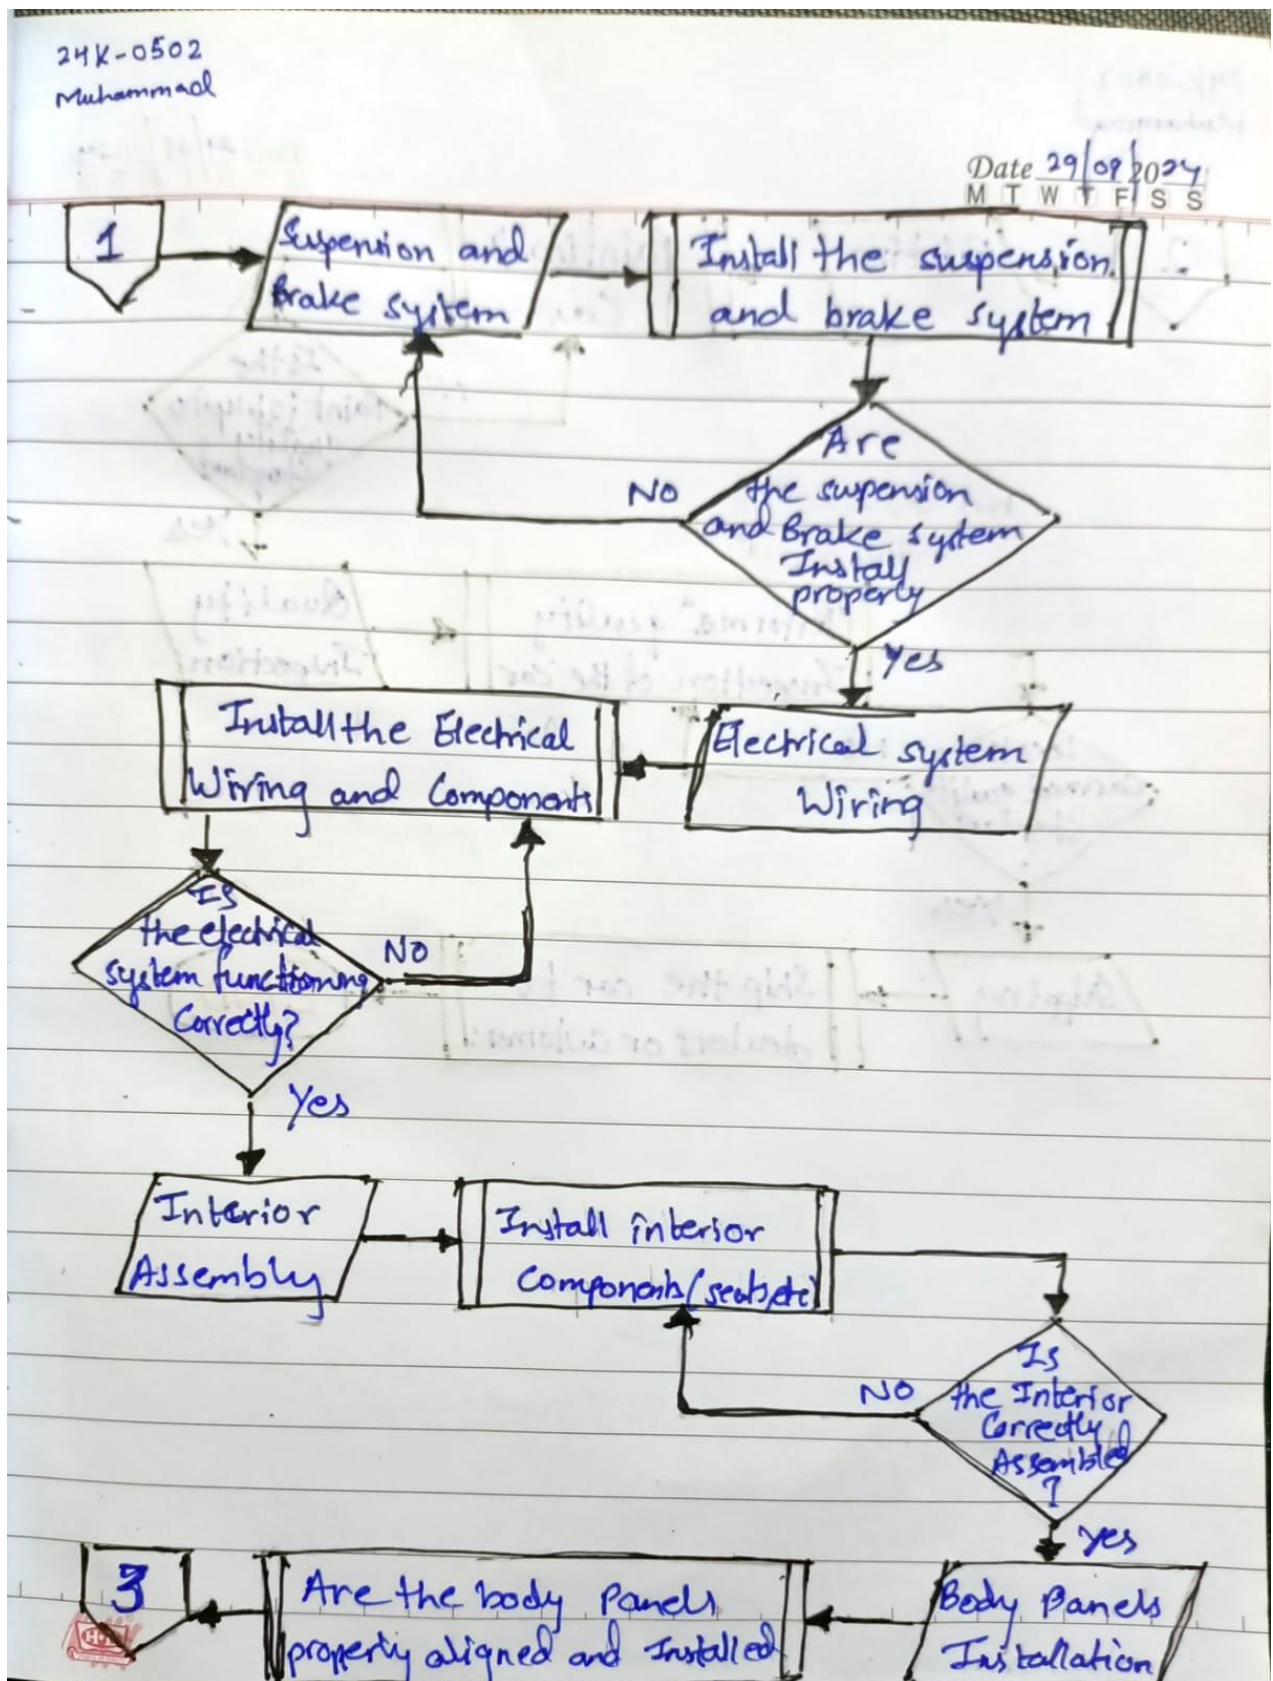 24K-0502
Muhammad
Date 29/09/2024
M T W T F S S
1
Suspension and
Brake system
Install the suspension
and brake system
Are
the suspension
and Brake system
Install
properly
NO
Yes
Electrical system
Wiring
Install the Electrical
Wiring and Components
Is
the electrical
system functioning
Correctly?
NO
Yes
Interior
Assembly
Install interior
Components (seats, etc)
Is
the Interior
Correctly
Assembled
?
NO
Yes
Body Panels
Installation
Are the body Panels
properly aligned and Installed
3